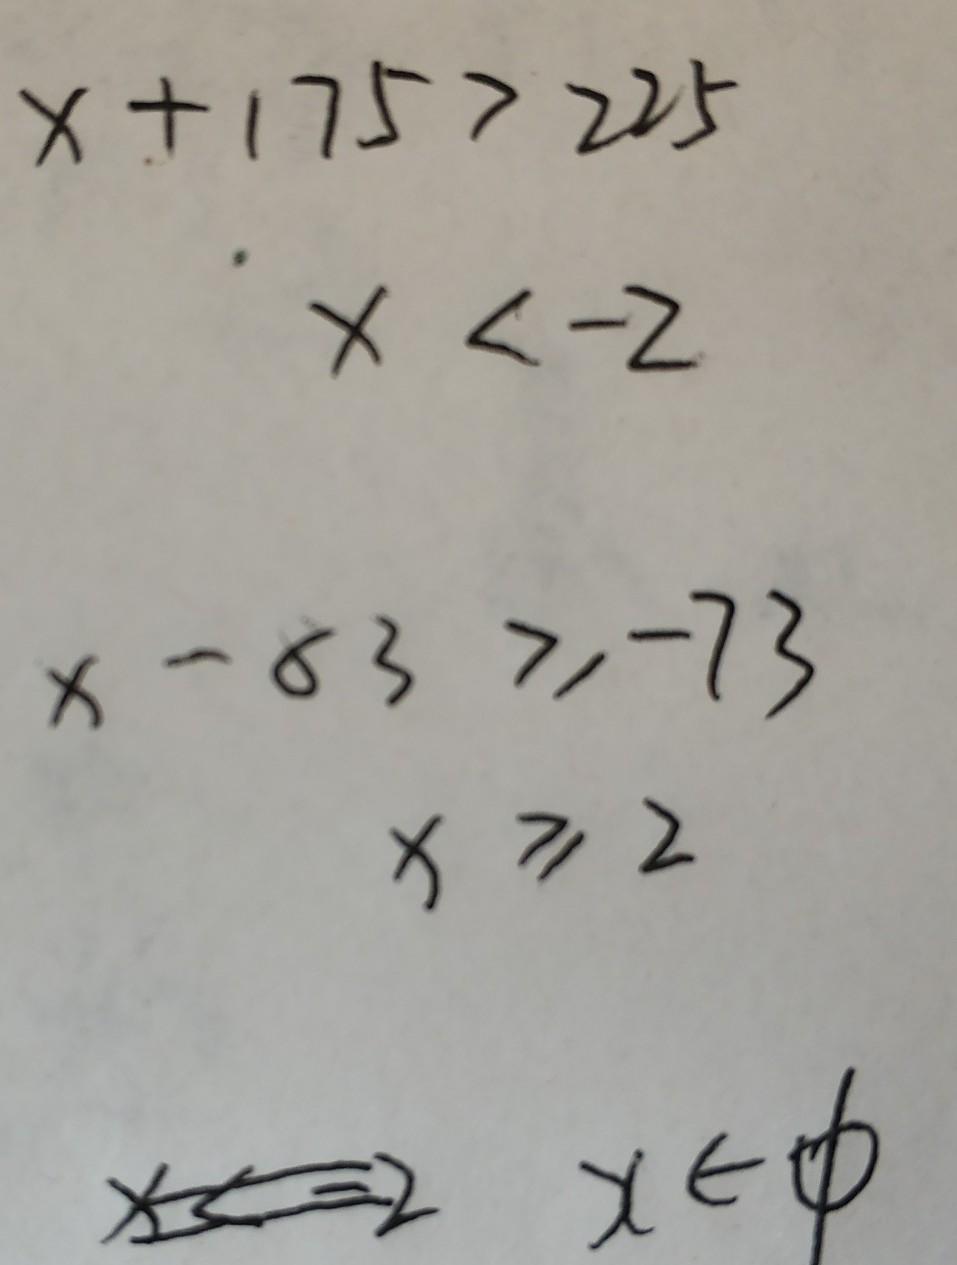 x + 175 > 225
x < -2
x - 83 ≥ -73
x ≥ 2
x ∈ ϕ